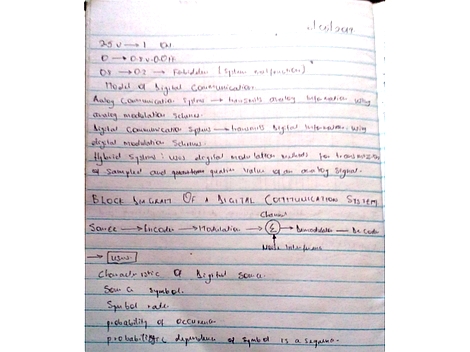 2.5v → 1 ON
0 → 0.8v - 0 OFF
0.8 → 02 → Forbidden (System malfunction)
Model of Digital Communication
Analog Communication System → transmits analog information using
analog modulation schemes.
Digital Communication System → transmits digital information using
digital modulation schemes.
Hybrid Systems: uses digital modulation methods for transmission
of sampled and value of an analog signal.
BLOCK DIAGRAM OF A DIGITAL COMMUNICATION SYSTEM
Channel
Source → Encoder → Modulation → Σ → Demodulator → Decoder
Noise Interference
→
Characteristic of Digital Source.
Source Symbol.
Symbol rate.
probability of occurrence
probabilistic dependence of symbol is a sequence.